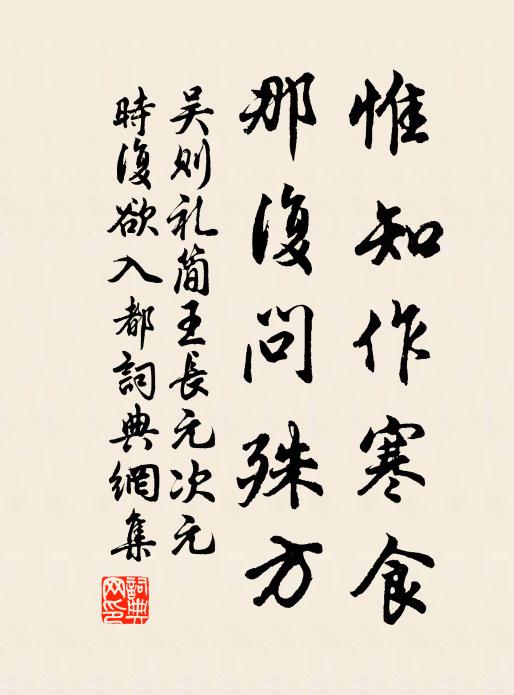 惟知作寒食
那復问殊方
吴则礼简王長元次元
時復欲入都詞典網集
詞典网印